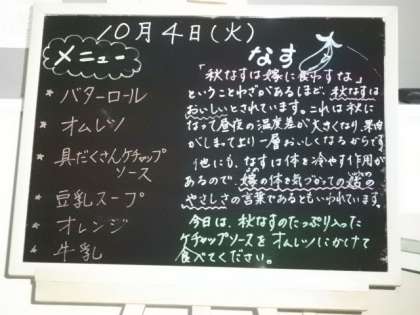 10月4日(火)
メニュー
* バターロール
* オムレツ
* 具だくさんケチャップ
ソース
* 豆乳スープ
* オレンジ
* 牛乳
なす
「秋なすは嫁に食わすな」
ということわざがあるほど、秋なすは
おいしいとされています。これは秋に
なって昼夜の温度差が大きくなり、果肉
がしまってより一層おいしくなるからです。
他にも、なすは体を冷やす作用が
あるので、嫁の体を気づかっての姑の
やさしさの言葉であるともいわれています。
今日は、秋なすのたっぷり入った
ケチャップソースをオムレツにかけて
食べてください。